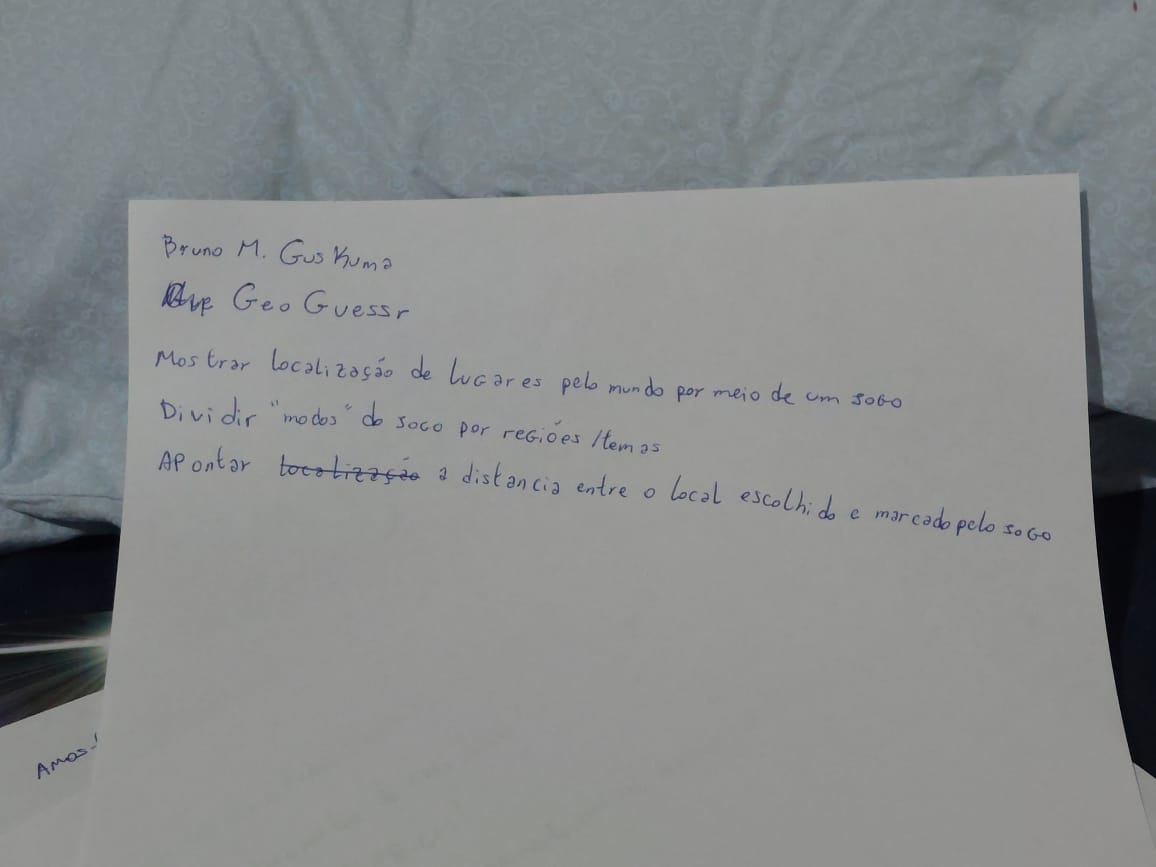 Bruno M. Guskuma
GeoGuessr
Mostrar localização de lugares pelo mundo por meio de um jogo
Dividir "modos" do jogo por regiões/temas
Apontar localização a distancia entre o local escolhido e marcado pelo jogo